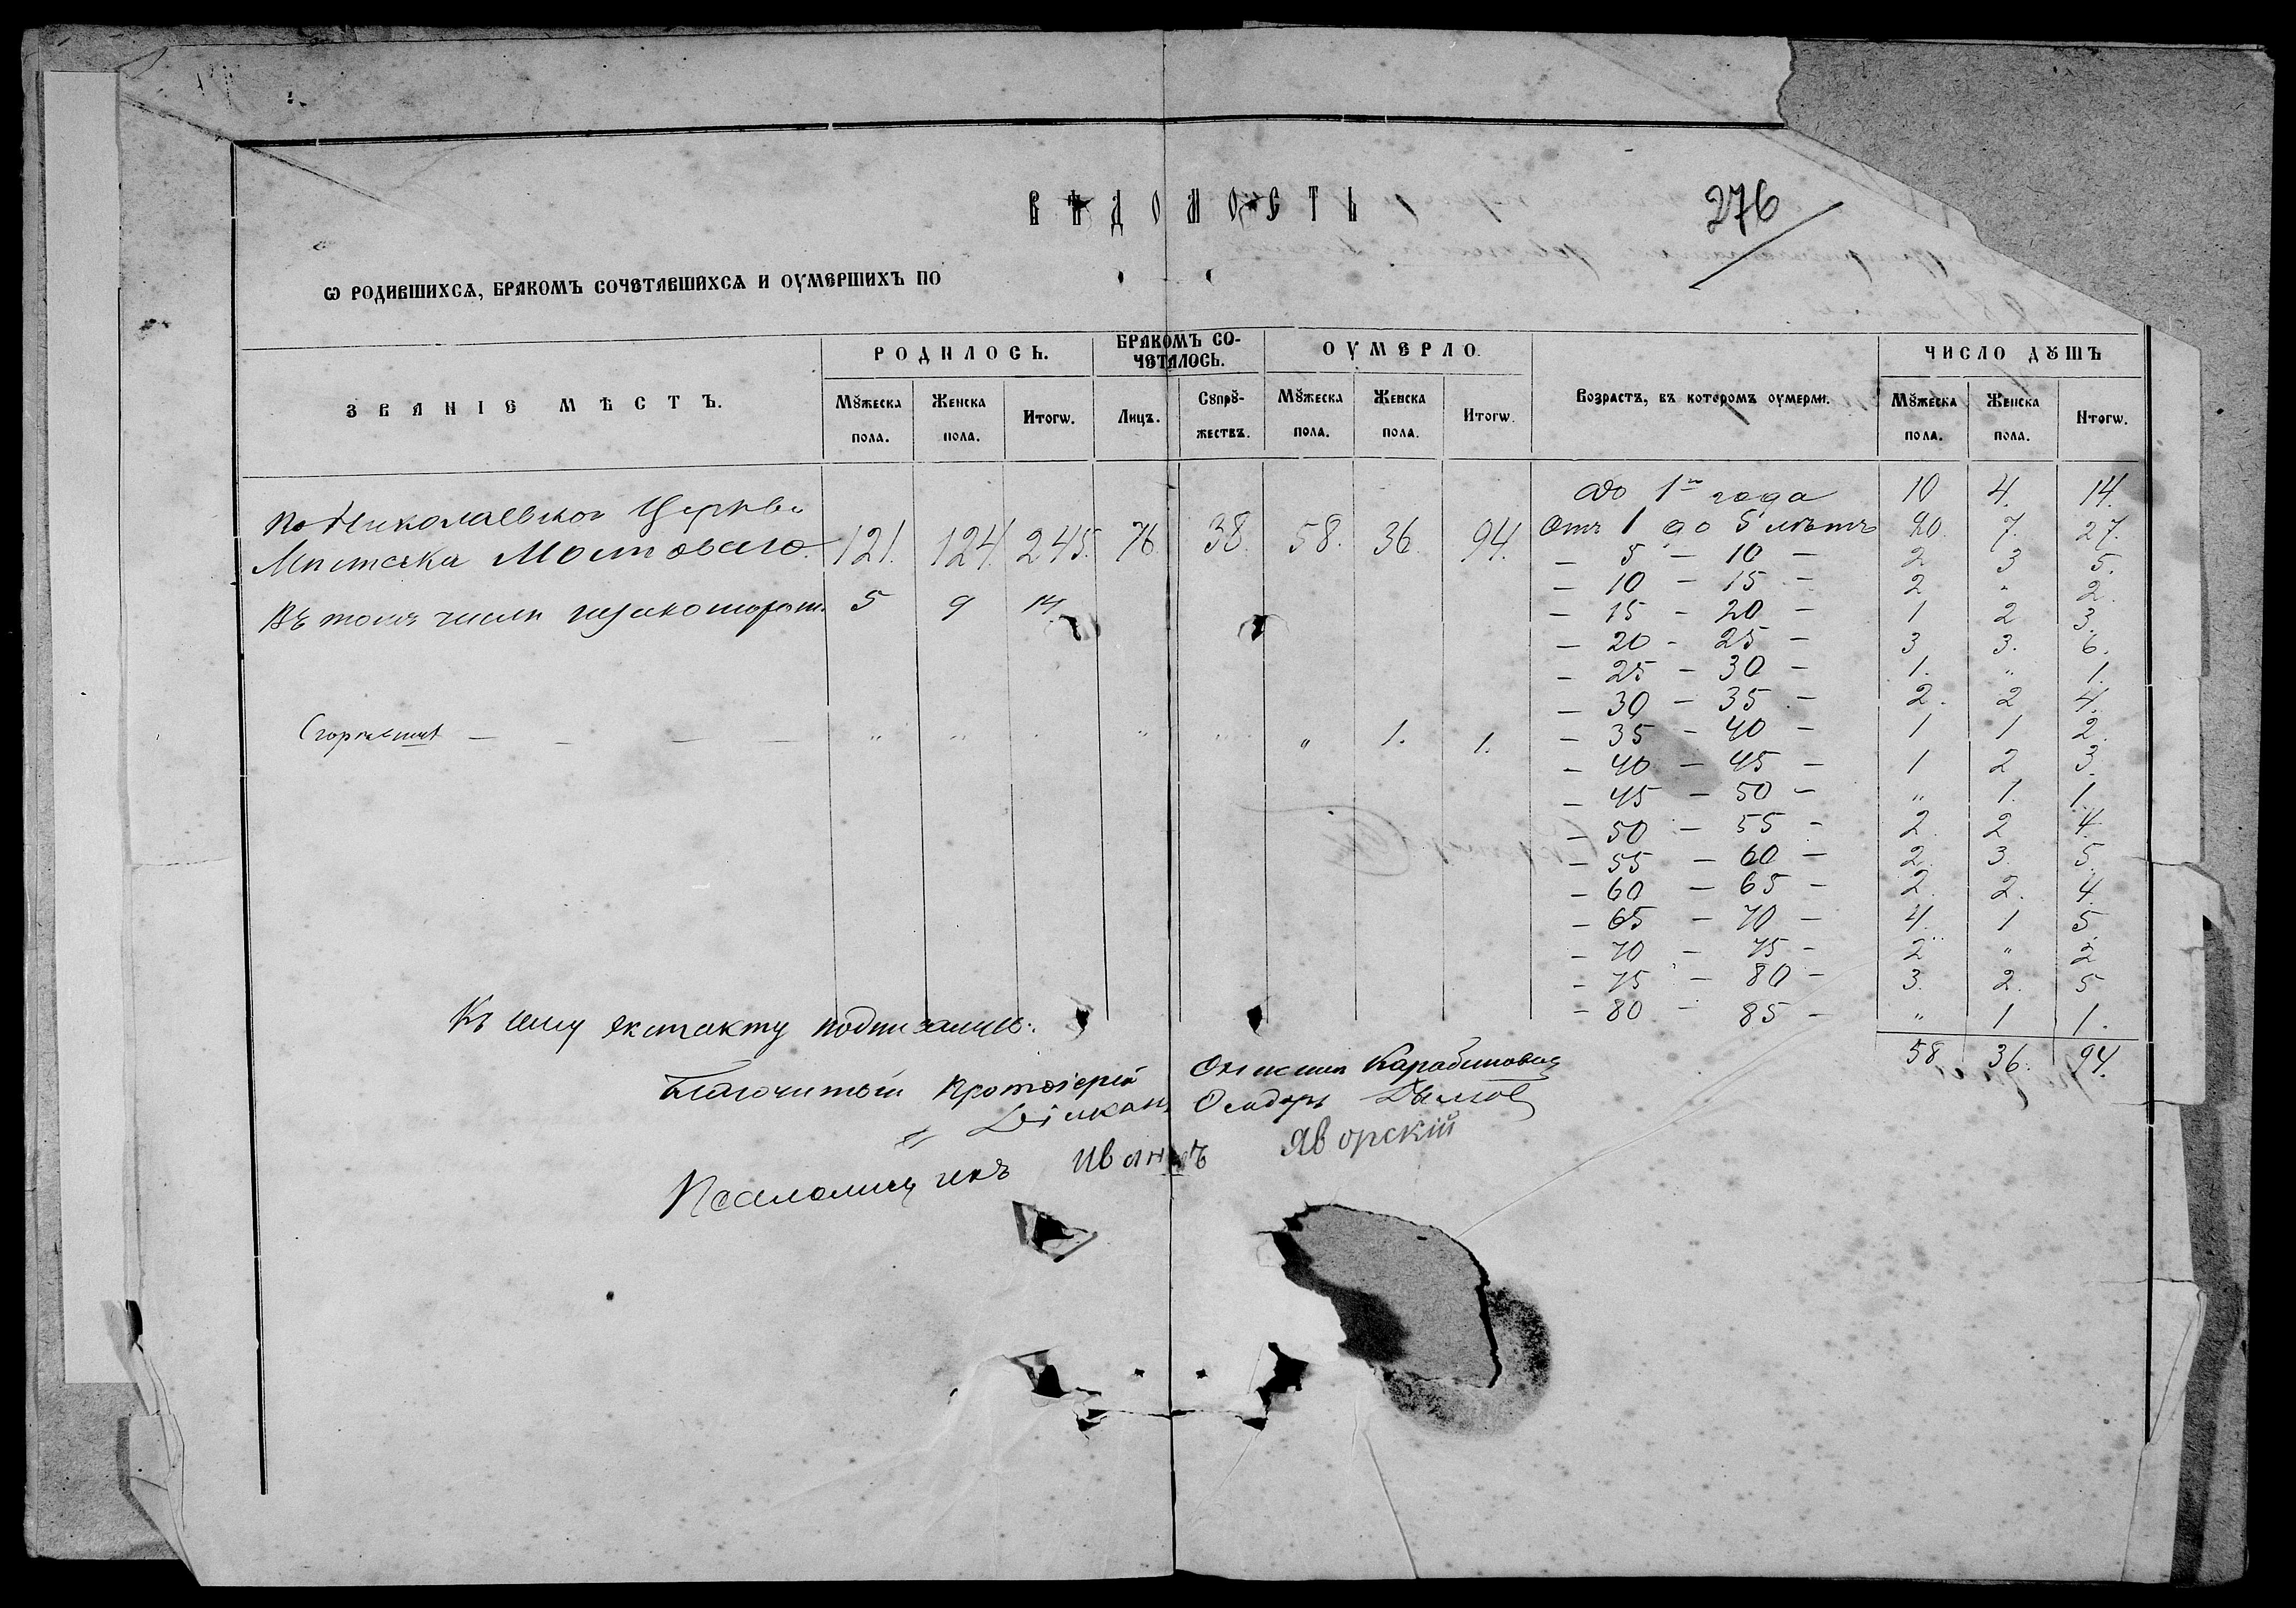 ВѢДОМОСТЬ
276
Ѡ РОДИВШИХСѦ, БРАКОМЪ СОЧЕТАВШИХСѦ И ОУМЕРШИХЪ ПО
ЗВАНІЕ МѢСТЪ. РОДИЛОСЬ. БРАКОМЪ СО-ЧЕТАЛОСЬ. ОУМЕРЛО. Возрастъ, въ которомъ оумерли. ЧИСЛО ДꙊШЪ
Мꙋжеска пола. Женска пола. Итогѡ. Лицъ. Сꙋпрꙋ-жествъ. Мꙋжеска пола. Женска пола. Итогѡ. Мꙋжеска пола. Женска пола. Итогѡ.
По Николаевской Церкви
Мѣстечка Мостоваго 121. 124. 245. 76. 38. 58. 36. 94.
Въ томъ числѣ 5 9 14.
„ „ „ „ „ 1. 1.
До 1го года 10 4. 14.
Отъ 1 до 5 лѣтъ 20. 7. 27.
— 5 — 10 — 2 3 5.
— 10 — 15 — 2 „ 2.
— 15 — 20 — 1 2 3.
— 20 — 25 — 3 3. 6.
— 25 — 30 — 1. „ 1.
— 30 — 35 — 2. 2 4.
— 35 — 40 — 1 1 2.
— 40 — 45 — 1 2 3.
— 45 — 50 — „ 1. 1.
— 50 — 55 — 2. 2 4.
— 55 — 60 — 2. 3. 5.
— 60 — 65 — 2. 2. 4.
— 65 — 70 — 4. 1 5.
— 70 — 75 — 2 „ 2
— 75 — 80 — 3. 2. 5
— 80 — 85 — „ 1 1.
58. 36. 94.
Къ сему екстракту подписались:
Благочинный Протоіерей Карабинович
Діаконъ Ѳеодоръ
Псаломщикъ Иванъ Яворскій